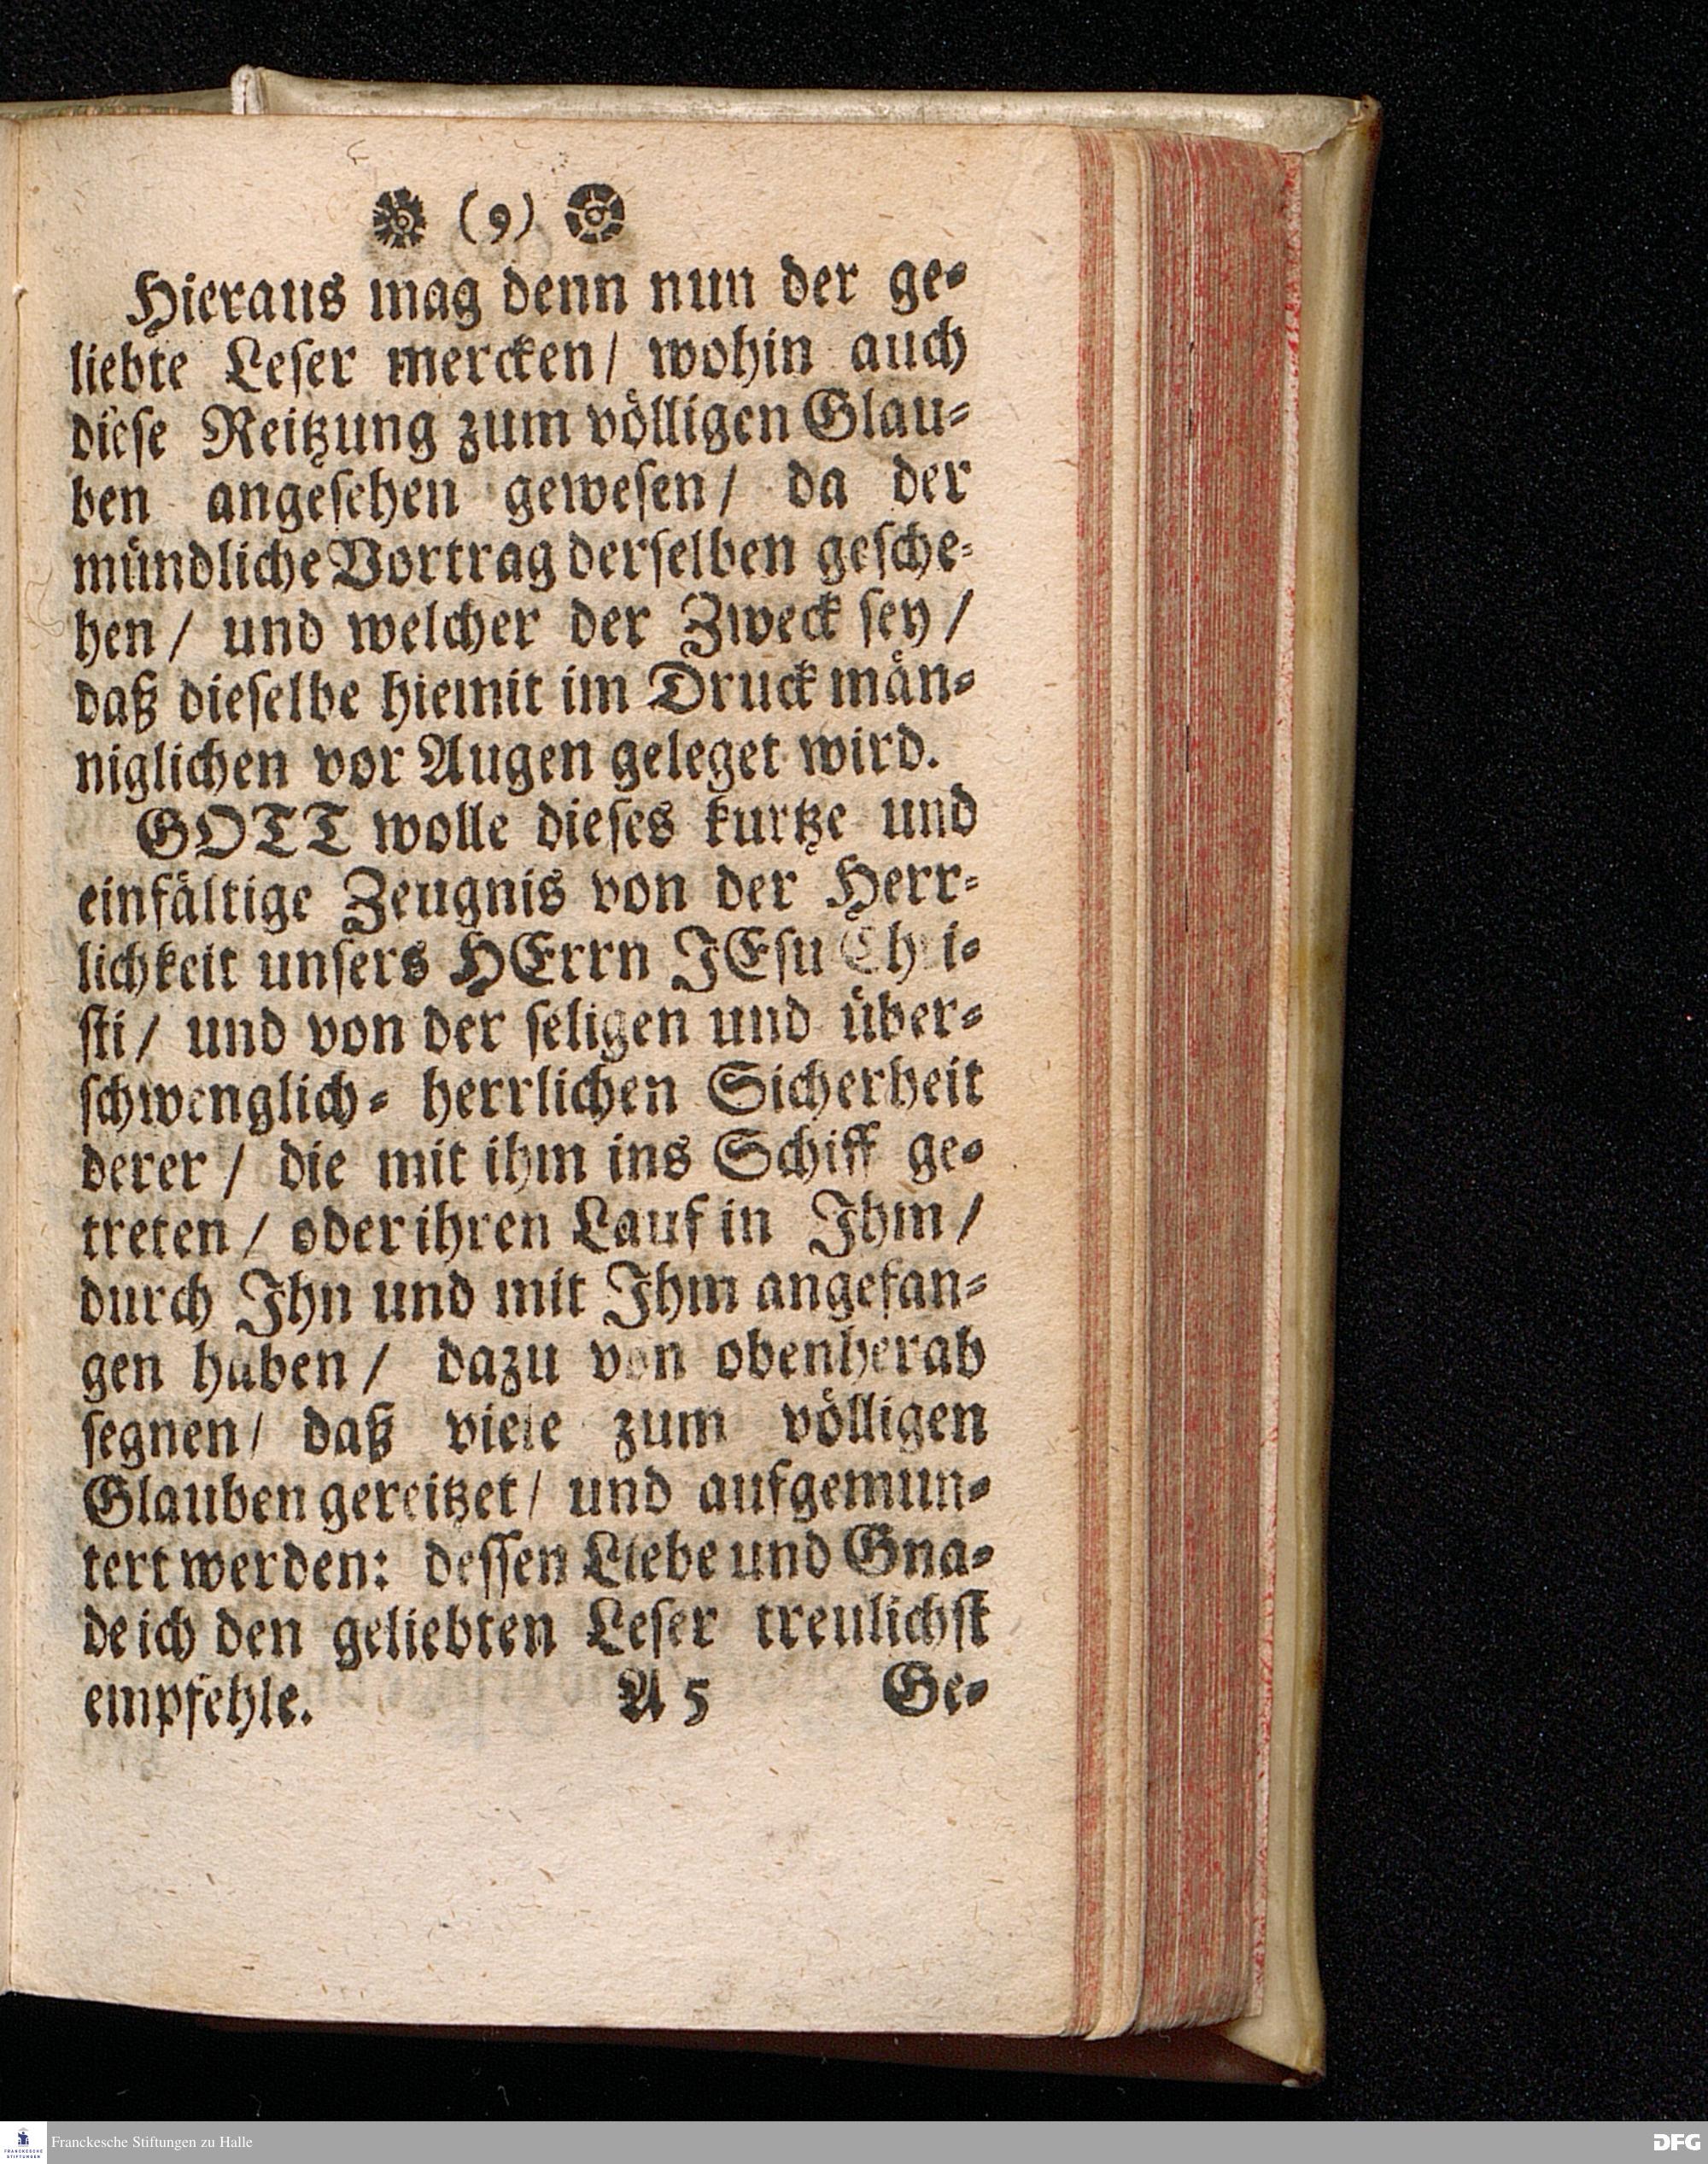 (9)
Hieraus mag denn nun der ge-
liebte Leser mercken/ wohin auch
diese Reitzung zum völligen Glau-
ben angesehen gewesen/ da der
mündliche Vortrag derselben gesche-
hen/ und welcher der Zweck sey/
daß dieselbe hiemit im Druck män-
niglichen vor Augen geleget wird.
GOTT wolle dieses kurtze und
einfältige Zeugnis von der Herr-
lichkeit unsers HErrn JEsu Chri-
sti/ und von der seligen und über-
schwenglich- herrlichen Sicherheit
derer/ die mit ihm ins Schiff ge-
treten/ oder ihren Lauf in Ihm/
durch Ihn und mit Ihm angefan-
gen haben/ dazu von obenherab
segnen/ daß viele zum völligen
Glauben gereitzet/ und aufgemun-
tert werden: dessen Liebe und Gna-
de ich den geliebten Leser treulichst
empfehle. A 5 Ge-
FRANCKESCHE
STIFTUNGEN
Franckesche Stiftungen zu Halle
DFG